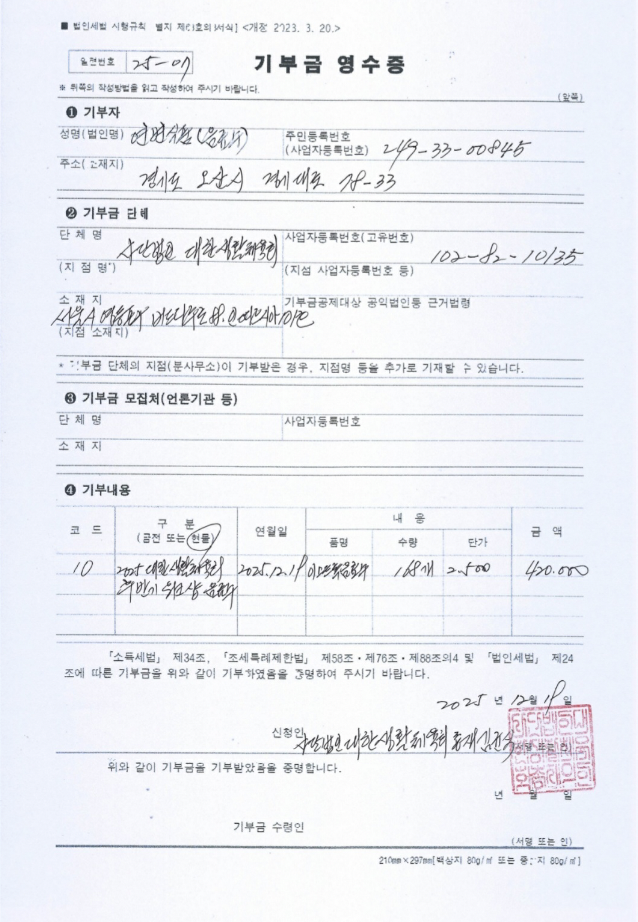 ■ 법인세법 시행규칙 [별지 제63호의3서식] <개정 2023. 3. 20.>
일련번호 25-07
기부금 영수증
※ 뒤쪽의 작성방법을 읽고 작성하여 주시기 바랍니다.
(앞쪽)
❶ 기부자
성명(법인명) 주민등록번호
(사업자등록번호) 249-33-00845
주소(소재지)
경기도 오산시 경기대로 78-33
❷ 기부금 단체
단 체 명 사단법인 대한생활체육회 사업자등록번호(고유번호)
102-82-10135
(지 점 명*) (지점 사업자등록번호 등)
소 재 지 기부금공제대상 공익법인등 근거법령
서울시 영등포구
(지점 소재지)
* 기부금 단체의 지점(분사무소)이 기부받은 경우, 지점명 등을 추가로 기재할 수 있습니다.
❸ 기부금 모집처(언론기관 등)
단 체 명 사업자등록번호
소 재 지
❹ 기부내용
코 드 구 분 (금전 또는 현물) 연월일 내 용 금 액
품명 수량 단가
10 2025 대한생활체육회 2025.12.19 168개 2.500 420.000
「소득세법」 제34조, 「조세특례제한법」 제58조ㆍ제76조ㆍ제88조의4 및 「법인세법」 제24
조에 따른 기부금을 위와 같이 기부하였음을 증명하여 주시기 바랍니다.
2025 년 12 월 19 일
신청인 사단법인 대한생활체육회 총재 (서명 또는 인)
위와 같이 기부금을 기부받았음을 증명합니다.
년 월 일
기부금 수령인
(서명 또는 인)
210mm×297mm[백상지 80g/㎡ 또는 중질지 80g/㎡]